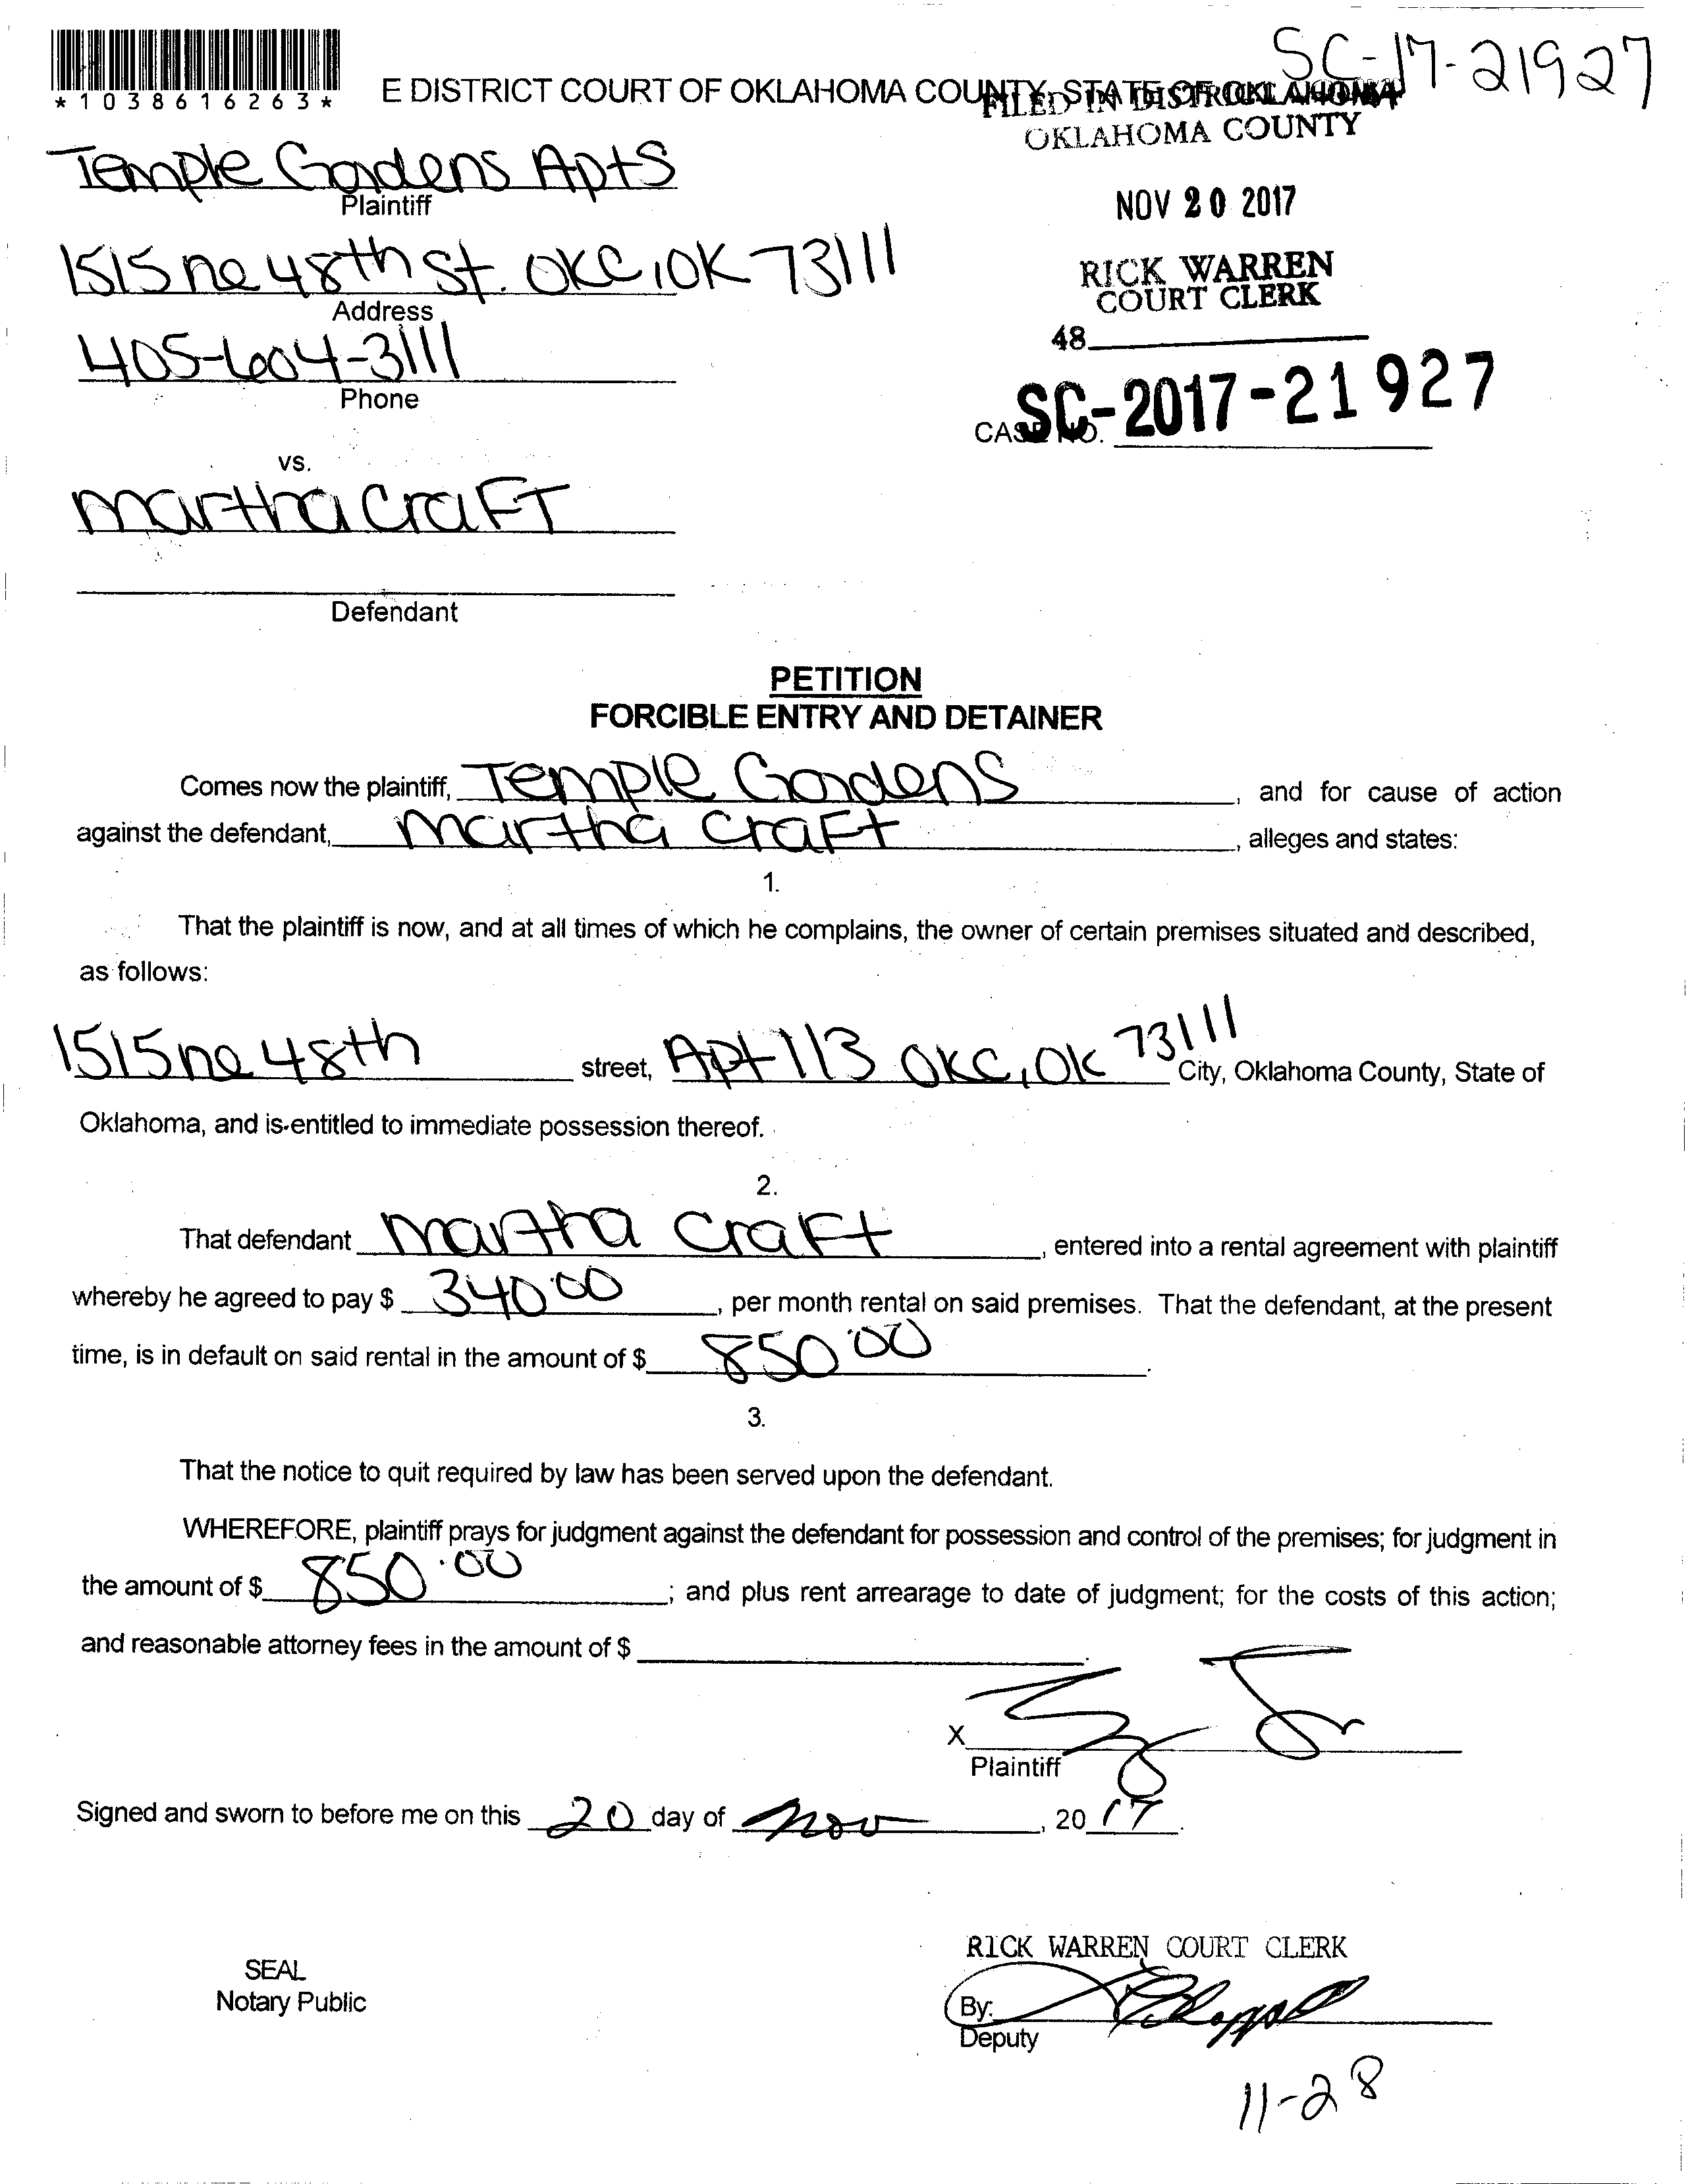 SC-17-21927
*1038616263*
E DISTRICT COURT OF OKLAHOMA COUNTY, STATE OF OKLAHOMA
FILED IN DISTRICT
OKLAHOMA COUNTY
Temple Gardens Apts
Plaintiff
NOV 20 2017
1515 ne 48th St. OKC, OK 73111
Address
RICK WARREN
COURT CLERK
405-604-3111
Phone
48
CASE NO. SC-2017-21927
vs.
martha CraFT
Defendant
PETITION
FORCIBLE ENTRY AND DETAINER
Comes now the plaintiff, Temple Gardens, and for cause of action
against the defendant, martha CraFt, alleges and states:
1.
That the plaintiff is now, and at all times of which he complains, the owner of certain premises situated and described,
as follows:
1515 ne 48th street, Apt 113 OKC, OK 73111 City, Oklahoma County, State of
Oklahoma, and is entitled to immediate possession thereof.
2.
That defendant martha CraFt, entered into a rental agreement with plaintiff
whereby he agreed to pay $ 340.00, per month rental on said premises. That the defendant, at the present
time, is in default on said rental in the amount of $ 850.00.
3.
That the notice to quit required by law has been served upon the defendant.
WHEREFORE, plaintiff prays for judgment against the defendant for possession and control of the premises; for judgment in
the amount of $ 850.00; and plus rent arrearage to date of judgment; for the costs of this action;
and reasonable attorney fees in the amount of $
X
Plaintiff
Signed and sworn to before me on this 20 day of nov, 20 17.
RICK WARREN COURT CLERK
SEAL
Notary Public
By:
Deputy
11-28